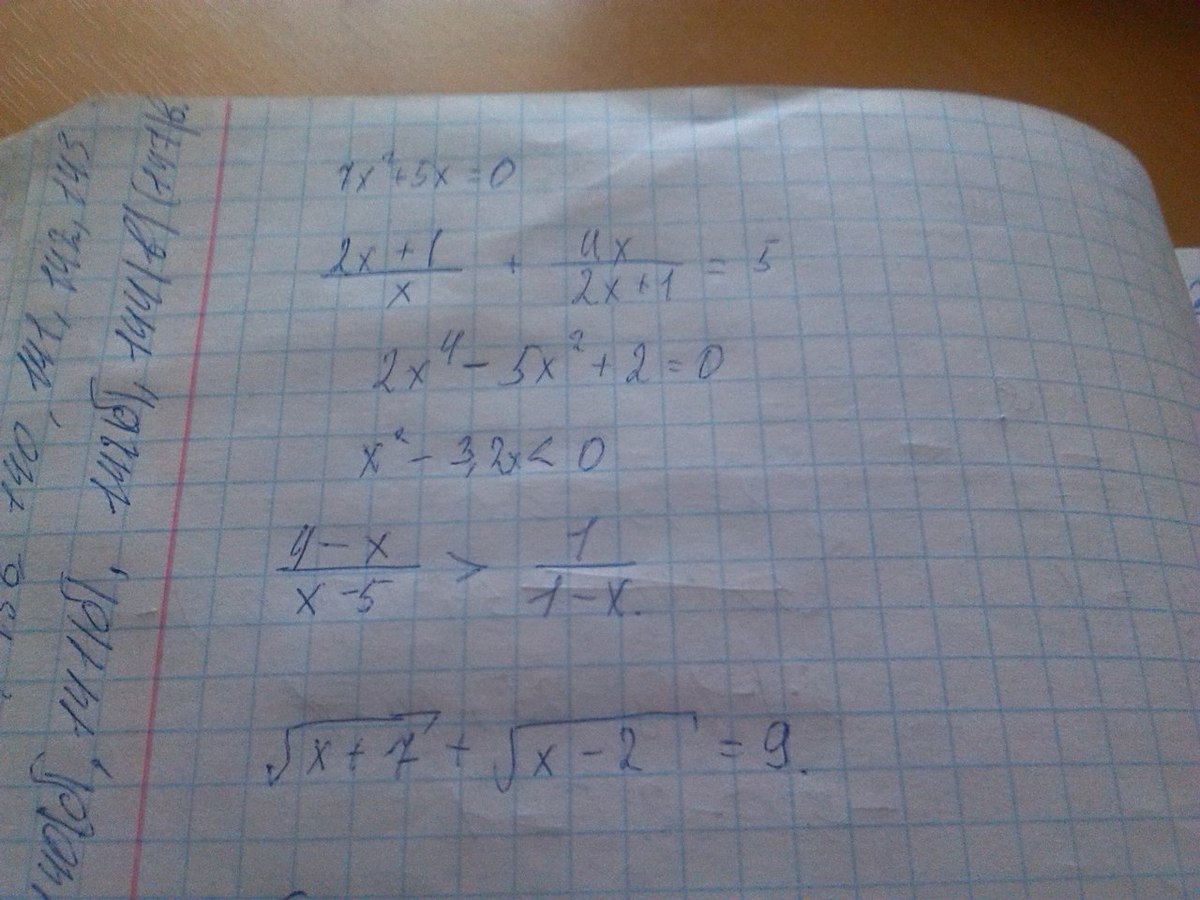 7x²+5x=0
(2x+1)/x + 4x/(2x+1) = 5
2x⁴ - 5x² + 2 = 0
x² - 3,2x < 0
(4-x)/(x-5) > 1/(1-x).
√(x+7) + √(x-2) = 9.
140, 141, 142, 143
140(б), 141(б), 142(б), 144(в) (147(в.